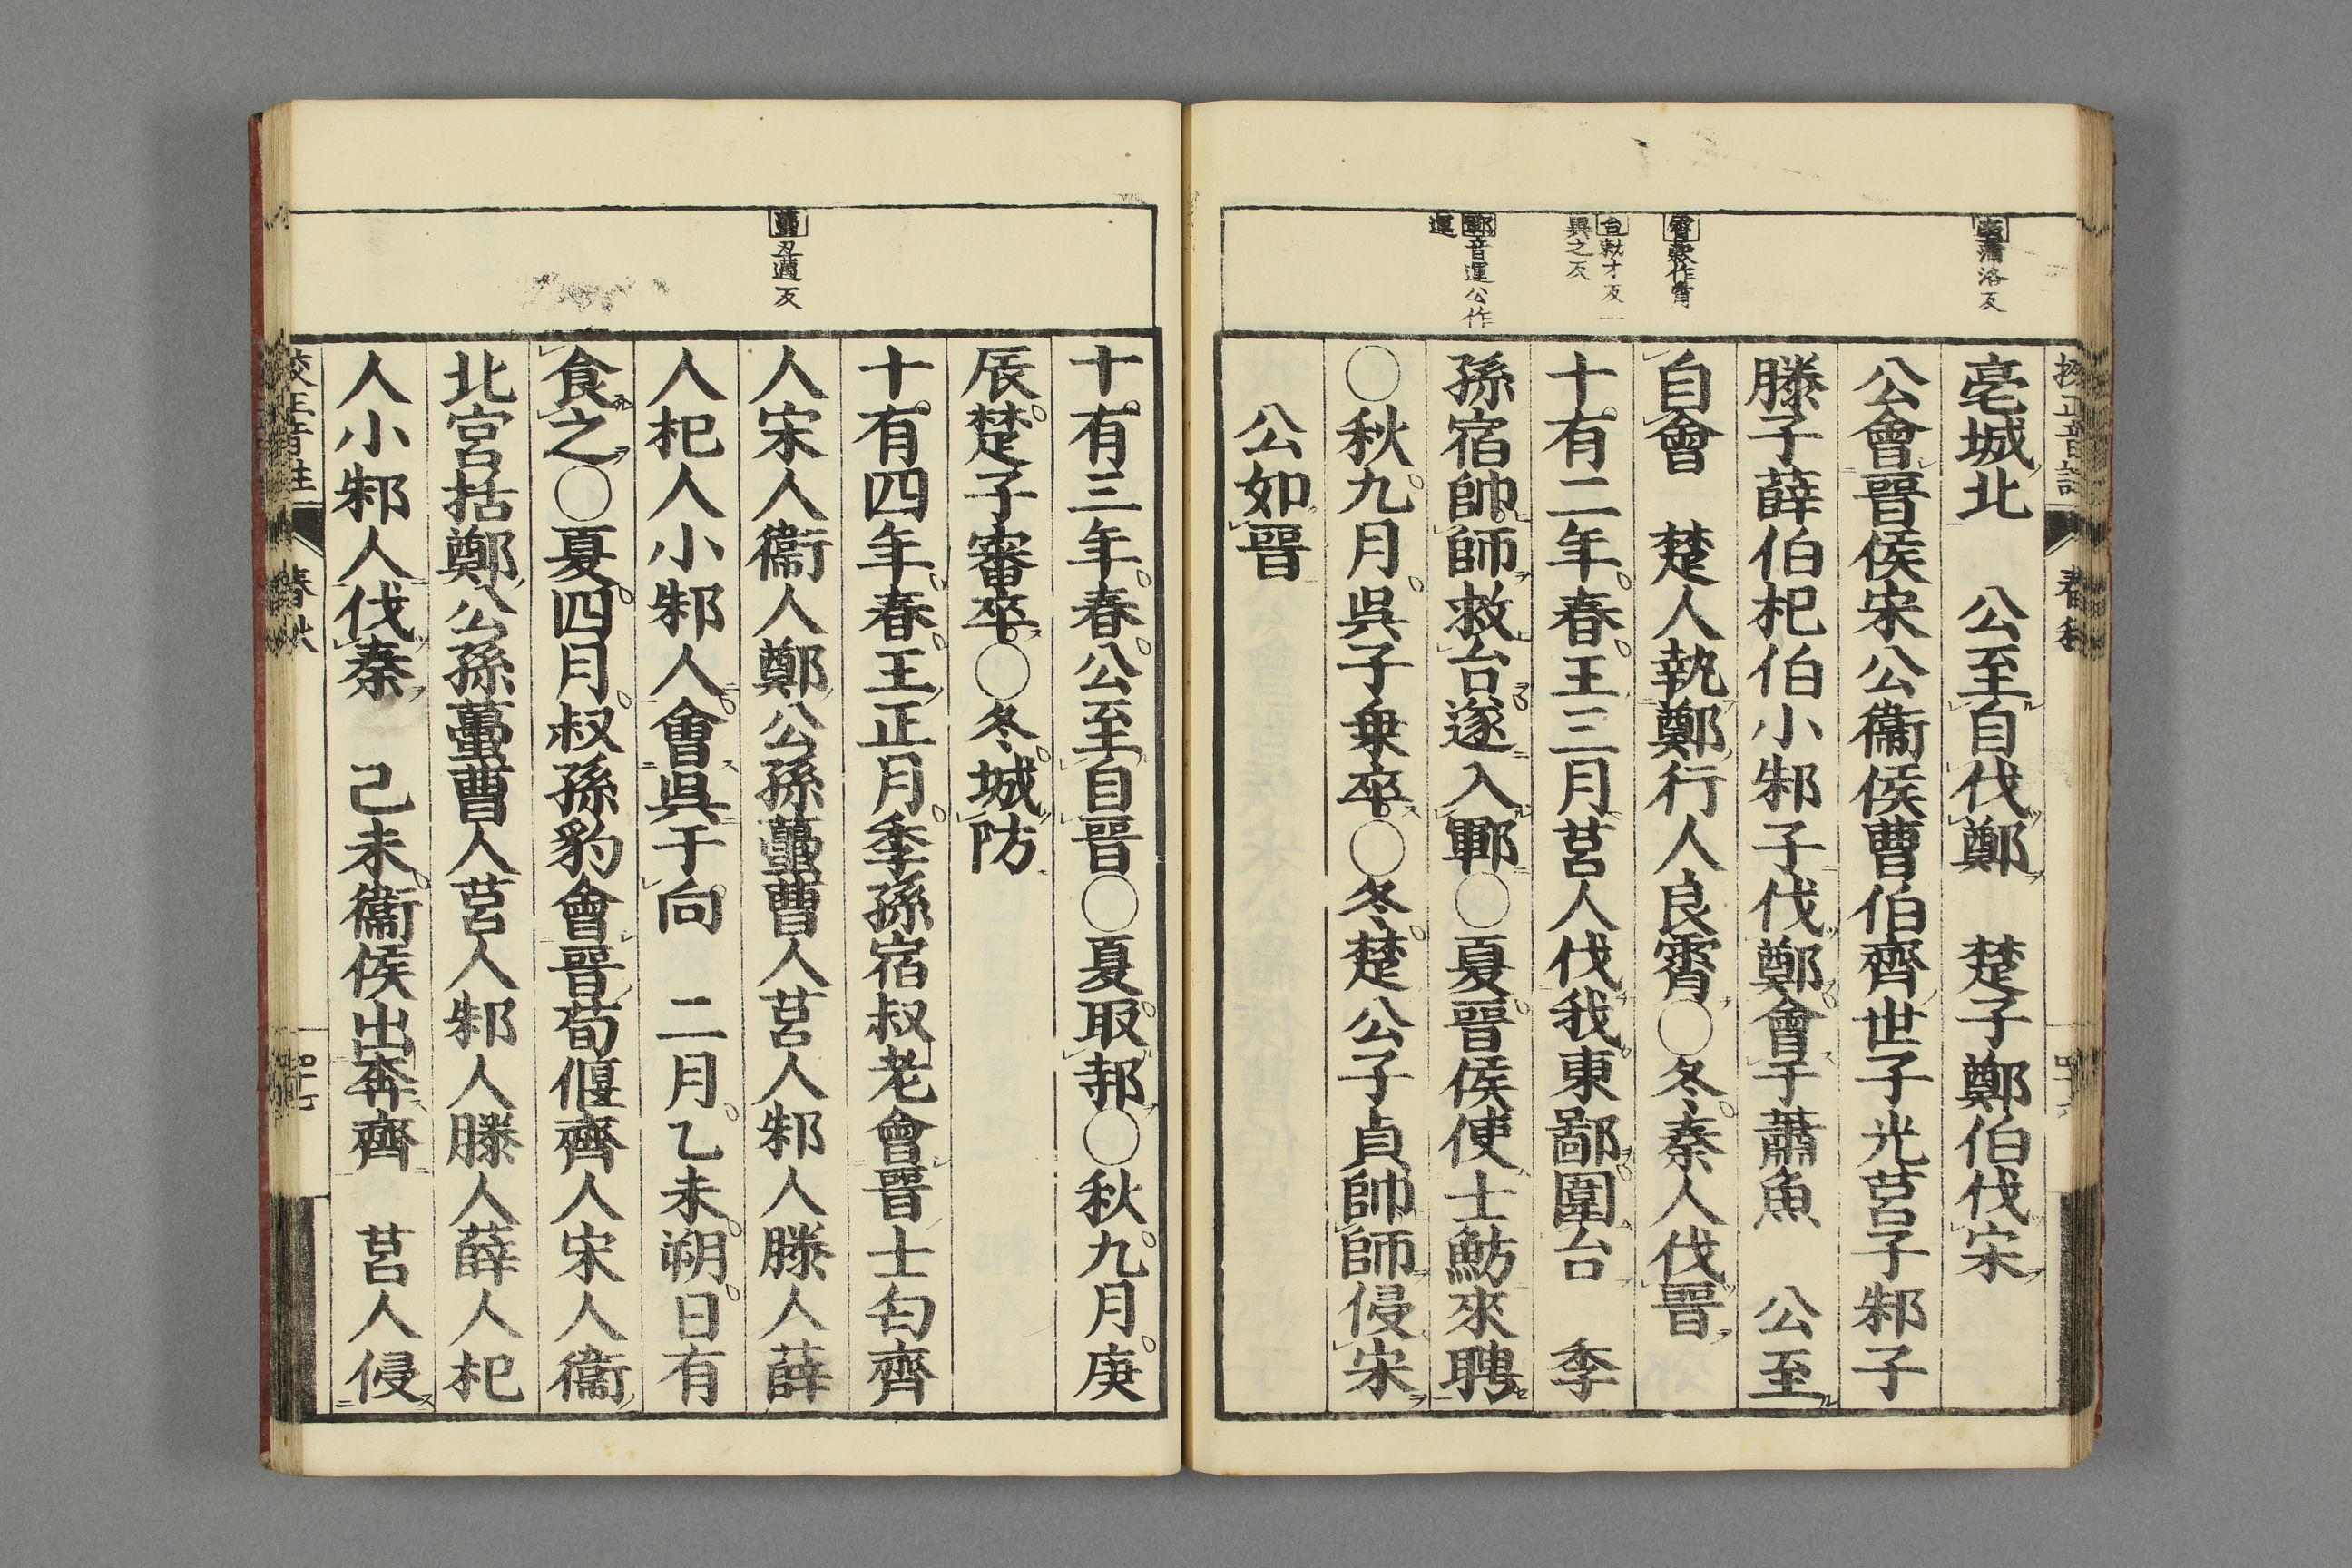 亳蒲洛反
霄穀作宵
台敕才反一
異之反
鄆音運公作
運
春秋
亳城北　公至自伐鄭　楚子鄭伯伐宋
公會晉侯宋公衞侯曹伯齊世子光莒子邾子
滕子薛伯杞伯小邾子伐鄭會于蕭魚　公至
自會　楚人執鄭行人良霄○冬秦人伐晉
十有二年春王三月莒人伐我東鄙圍台　季
孫宿帥師救台遂入鄆○夏晉侯使士魴來聘
○秋九月吳子乗卒○冬楚公子貞帥師侵宋
公如晉
蠆丑邁反
十有三年春公至自晉○夏取邿○秋九月庚
辰楚子審卒○冬城防
十有四年春王正月季孫宿叔老會晉士匄齊
人宋人衞人鄭公孫蠆曹人莒人邾人滕人薛
人杞人小邾人會吳于向　二月乙未朔日有
食之○夏四月叔孫豹會晉荀偃齊人宋人衞
北宮括鄭公孫蠆曹人莒人邾人滕人薛人杞
人小邾人伐秦　己未衞侯出奔齊　莒人侵
校正音註
春秋